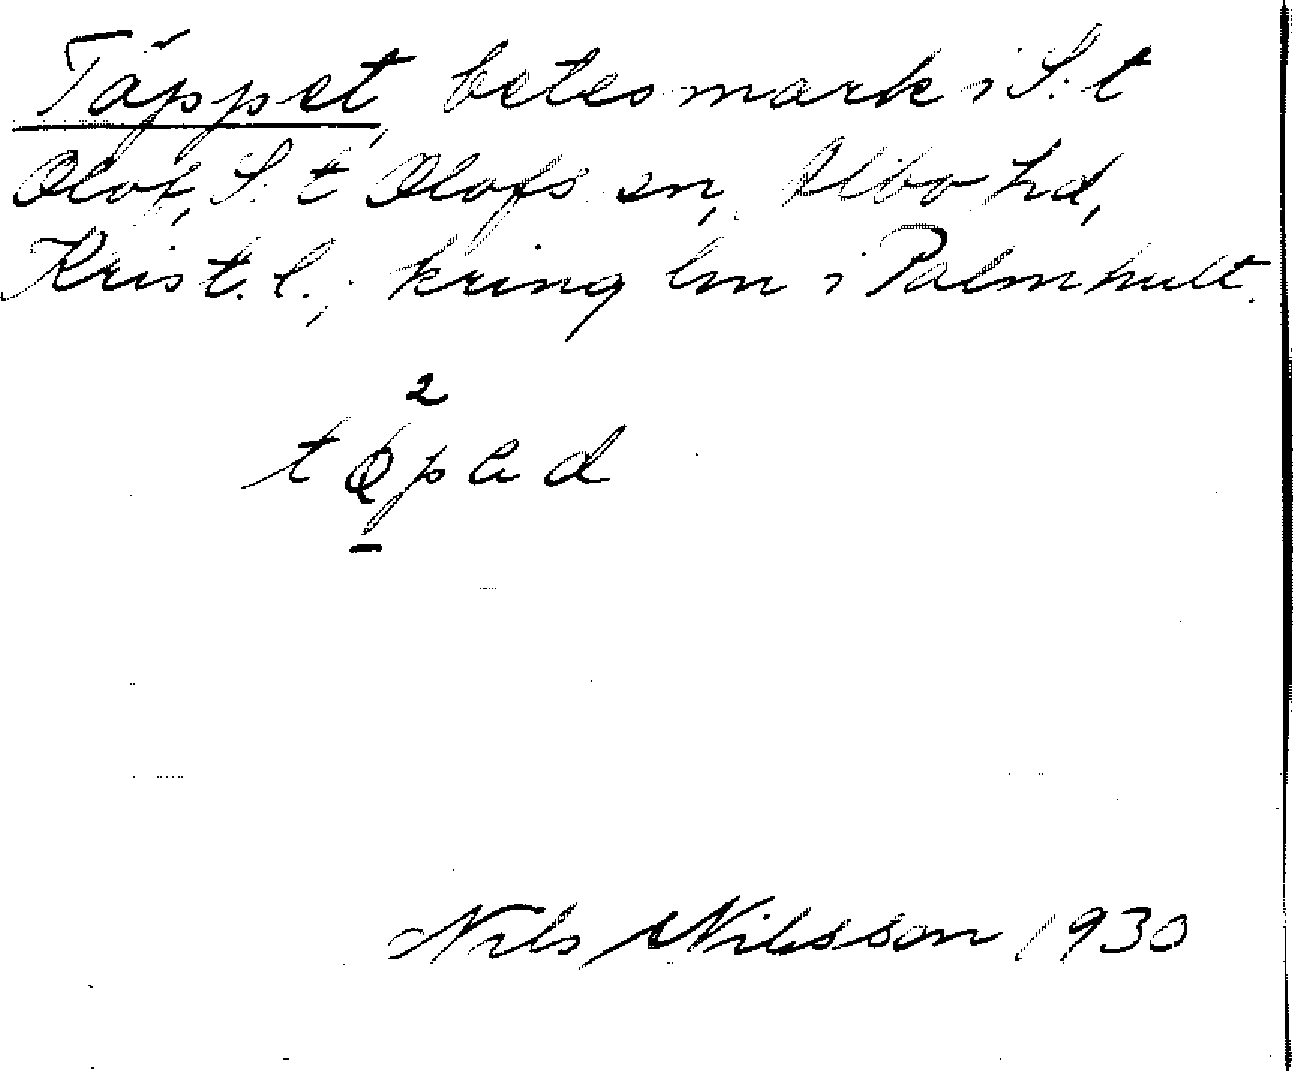 Täppet, betesmark i S:t
Olof, S:t Olofs sn, Albo hd,
Krist. l.; kring lm i Palmhult.
2
Nils Nilsson 1930